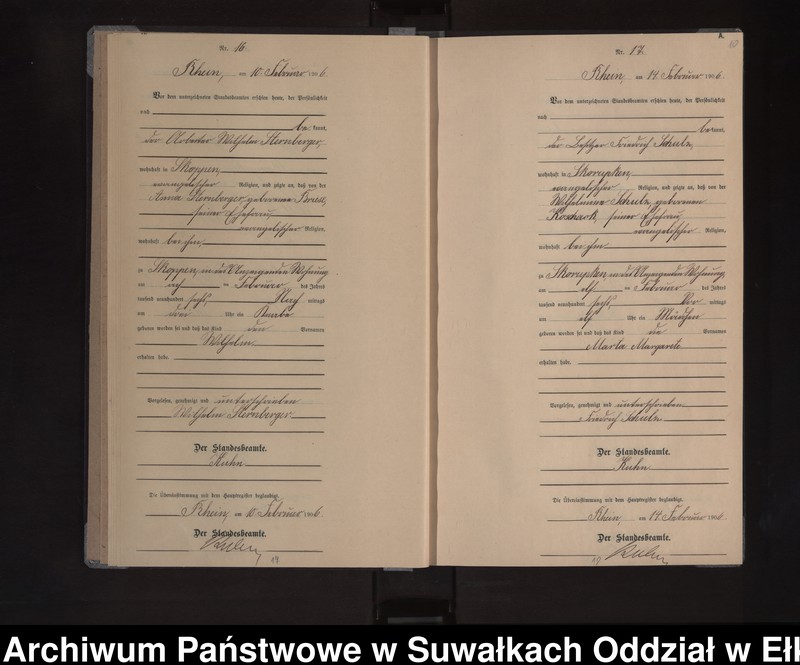 Nr. 16.
Rhein, am 10. Februar 1906.
Vor dem unterzeichneten Standesbeamten erschien heute, der Persönlichkeit
nach
be kannt,
der Wilhelm Sternberger,
wohnhaft in Skoppen,
evangelischer Religion, und zeigte an, daß von der
Anna Sternberger, geborenen
seiner Ehefrau,
evangelischer Religion,
wohnhaft bei ihm,
zu Skoppen, in der Wohnung
am Februar des Jahres
tausend neunhundert sechs, Nach mittags
um drei Uhr ein Knabe
geboren worden sei und daß das Kind den Vornamen
Wilhelm
erhalten habe.
Vorgelesen, genehmigt und unterschrieben
Wilhelm Sternberger
Der Standesbeamte.
Kuhn
Die Übereinstimmung mit dem Hauptregister beglaubigt.
Rhein, am 10. Februar 1906.
Der Standesbeamte.
Kuhn
A.
Nr. 17.
Rhein, am 14. Februar 1906.
Vor dem unterzeichneten Standesbeamten erschien heute, der Persönlichkeit
nach
be kannt,
der Besitzer Friedrich Schulz,
wohnhaft in Skorupken,
evangelischer Religion, und zeigte an, daß von der
Wilhelmine Schulz, geborenen
seiner Ehefrau,
evangelischer Religion,
wohnhaft bei ihm,
zu Skorupken, in der Wohnung,
am elf Februar des Jahres
tausend neunhundert sechs, Vor mittags
um elf Uhr ein Mädchen
geboren worden sei und daß das Kind die Vornamen
Marta Margarete
erhalten habe.
Vorgelesen, genehmigt und unterschrieben
Friedrich Schulz
Der Standesbeamte.
Kuhn
Die Übereinstimmung mit dem Hauptregister beglaubigt.
Rhein, am 14. Februar 1906.
Der Standesbeamte.
Kuhn
Archiwum Państwowe w Suwałkach Oddział w Ełk